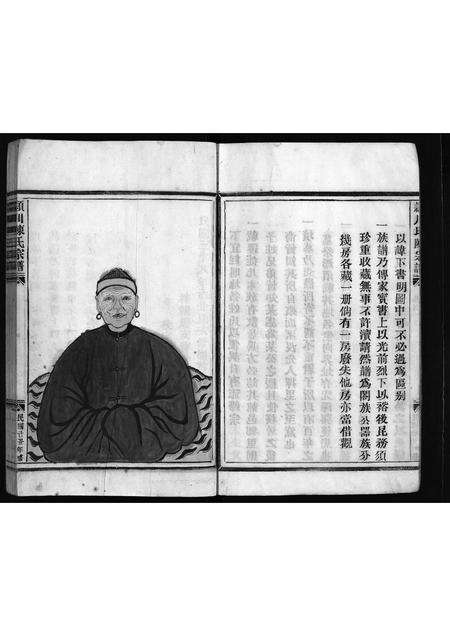 以諱下書明圖中可不必過為區別
一族譜乃傳家寶書上以光前烈下以裕後昆務須
珍重收藏無事不許瀆請然譜為闔族公器族分
幾房各藏一册倘有一房廢失他房亦當借觀
潁川陳氏宗譜
民國己丑年